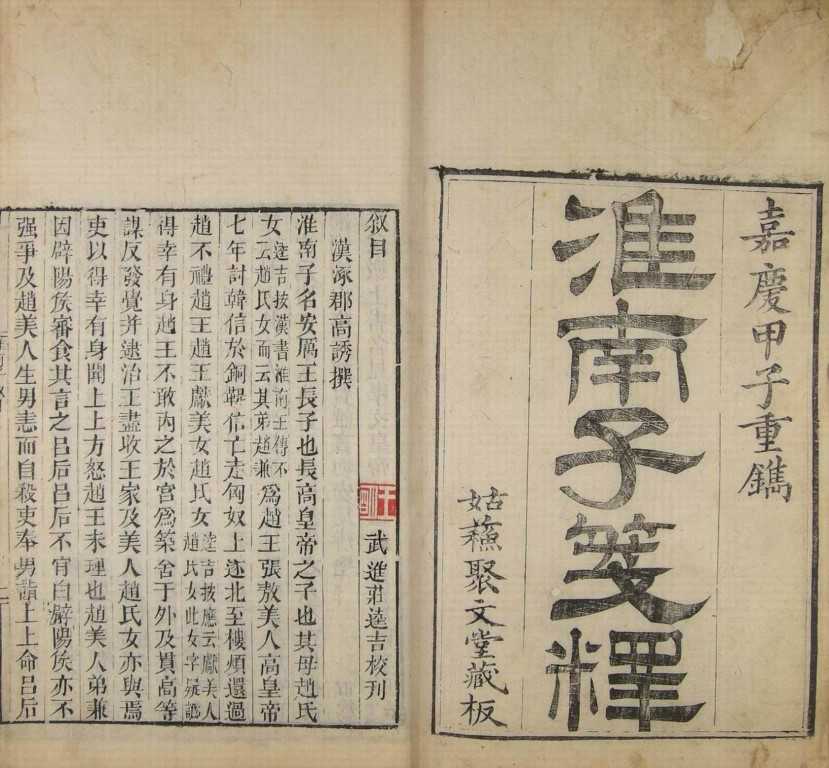 嘉慶甲子重鐫
淮南子箋釋
姑蘇聚文堂藏板
叙目 武進莊逵吉校刊
漢涿郡高誘撰
淮南子名安厲王長子也長高皇帝之子也其母趙氏
女逵吉按漢書淮南王傳不云趙氏女而云其弟趙兼為趙王張敖美人高皇帝
七年討韓信於銅鞮信亡走匈奴上遂北至樓煩還過
趙不禮趙王趙王獻美女趙氏女逵吉按應云獻美人趙氏女此女字疑譌
得幸有身趙王不敢內之於宮為築舍于外及貫高等
謀反發覺并逮治王盡收王家及美人趙氏女亦與焉
吏以得幸有身聞上上方怒趙王未理也趙美人弟兼
因辟陽侯審食其言之呂后呂后不肯白辟陽侯亦不
强爭及趙美人生男恚而自殺吏奉男詣上上命呂后